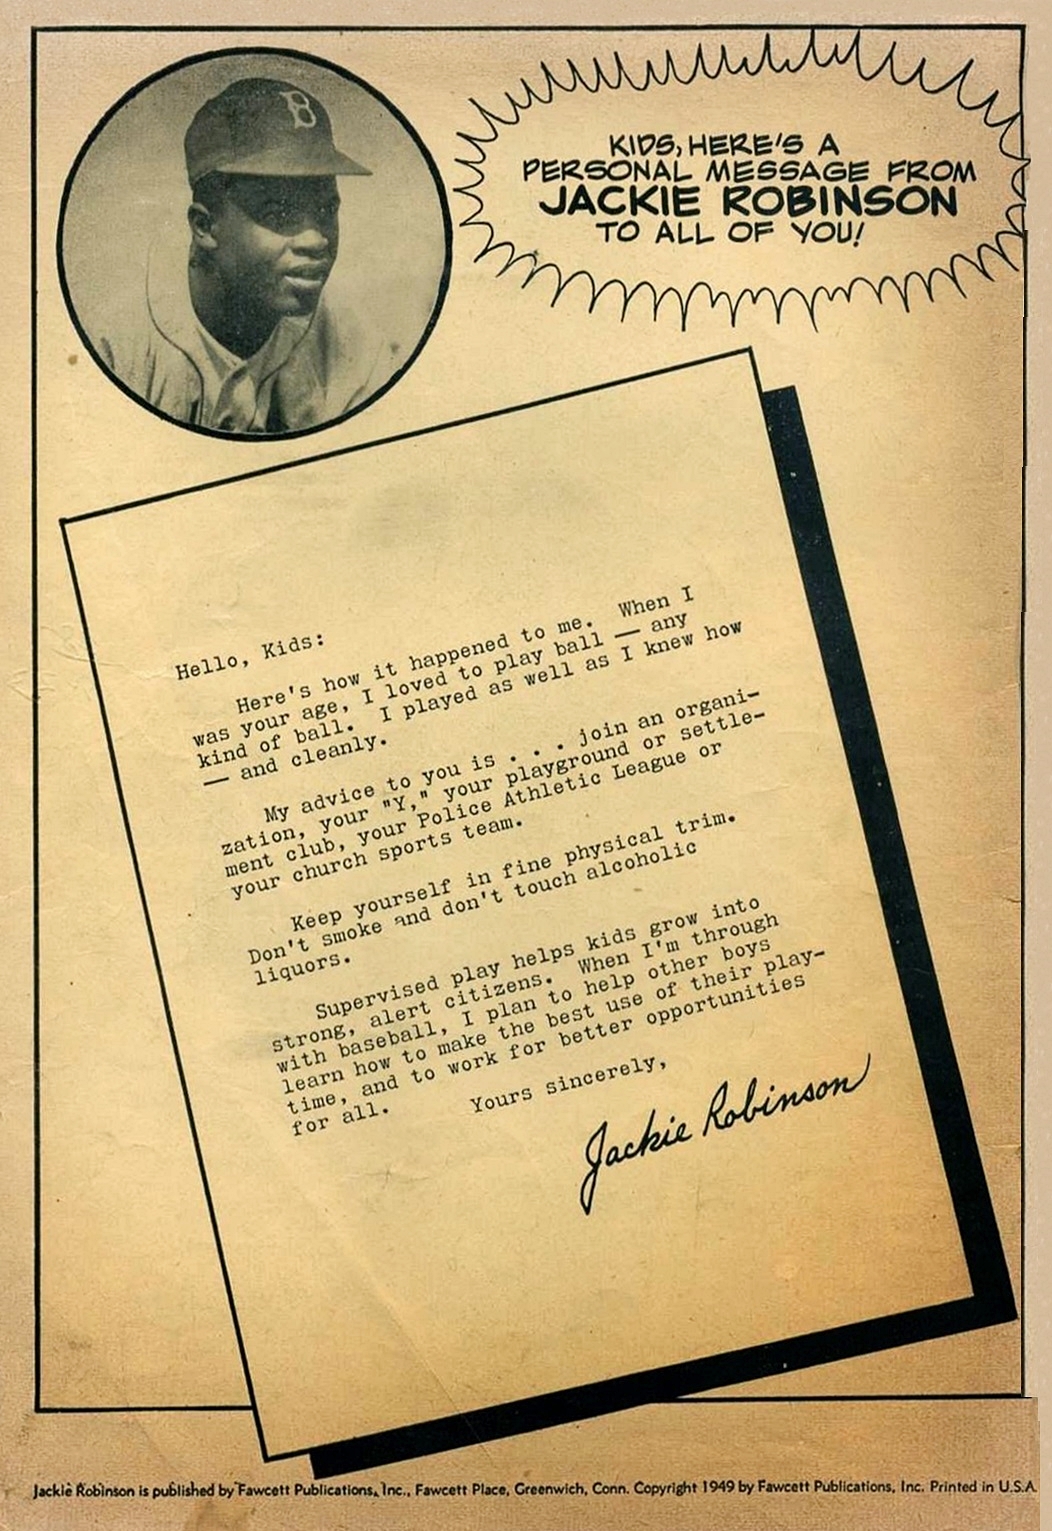 B
KIDS, HERE'S A
PERSONAL MESSAGE FROM
JACKIE ROBINSON
TO ALL OF YOU!
Hello, Kids:
Here's how it happened to me. When I
was your age, I loved to play ball — any
kind of ball. I played as well as I knew how
— and cleanly.
My advice to you is . . . join an organi-
zation, your "Y," your playground or settle-
ment club, your Police Athletic League or
your church sports team.
Keep yourself in fine physical trim.
Don't smoke and don't touch alcoholic
liquors.
Supervised play helps kids grow into
strong, alert citizens. When I'm through
with baseball, I plan to help other boys
learn how to make the best use of their play-
time, and to work for better opportunities
for all.
Yours sincerely,
Jackie Robinson
Jackie Robinson is published by Fawcett Publications, Inc., Fawcett Place, Greenwich, Conn. Copyright 1949 by Fawcett Publications, Inc. Printed in U.S.A.